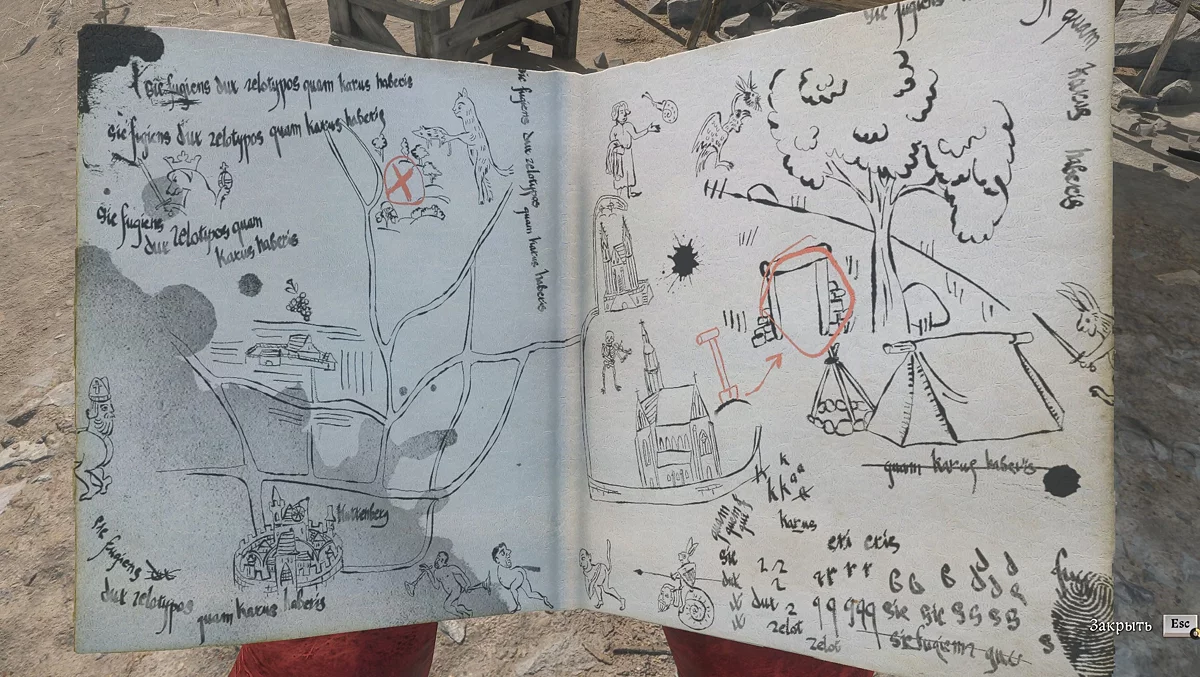 sic fugiens dux zelotypos quam karus haberis
sic fugiens dux zelotypos quam karus haberis
sic fugiens
dux zelotypos quam
karus haberis
sic fugiens dux zelotypos quam karus haberis
Kuttenberg
sic fugiens dux
dux zelotypos
quam karus haberis
sic fugiens
quam karus haberis
quam karus haberis
k
k k k a
karus
quam
quam
eri eris
sic
dux
dux 2
zelot
zelot
sic sic
sic fugiens
Закрыть Esc